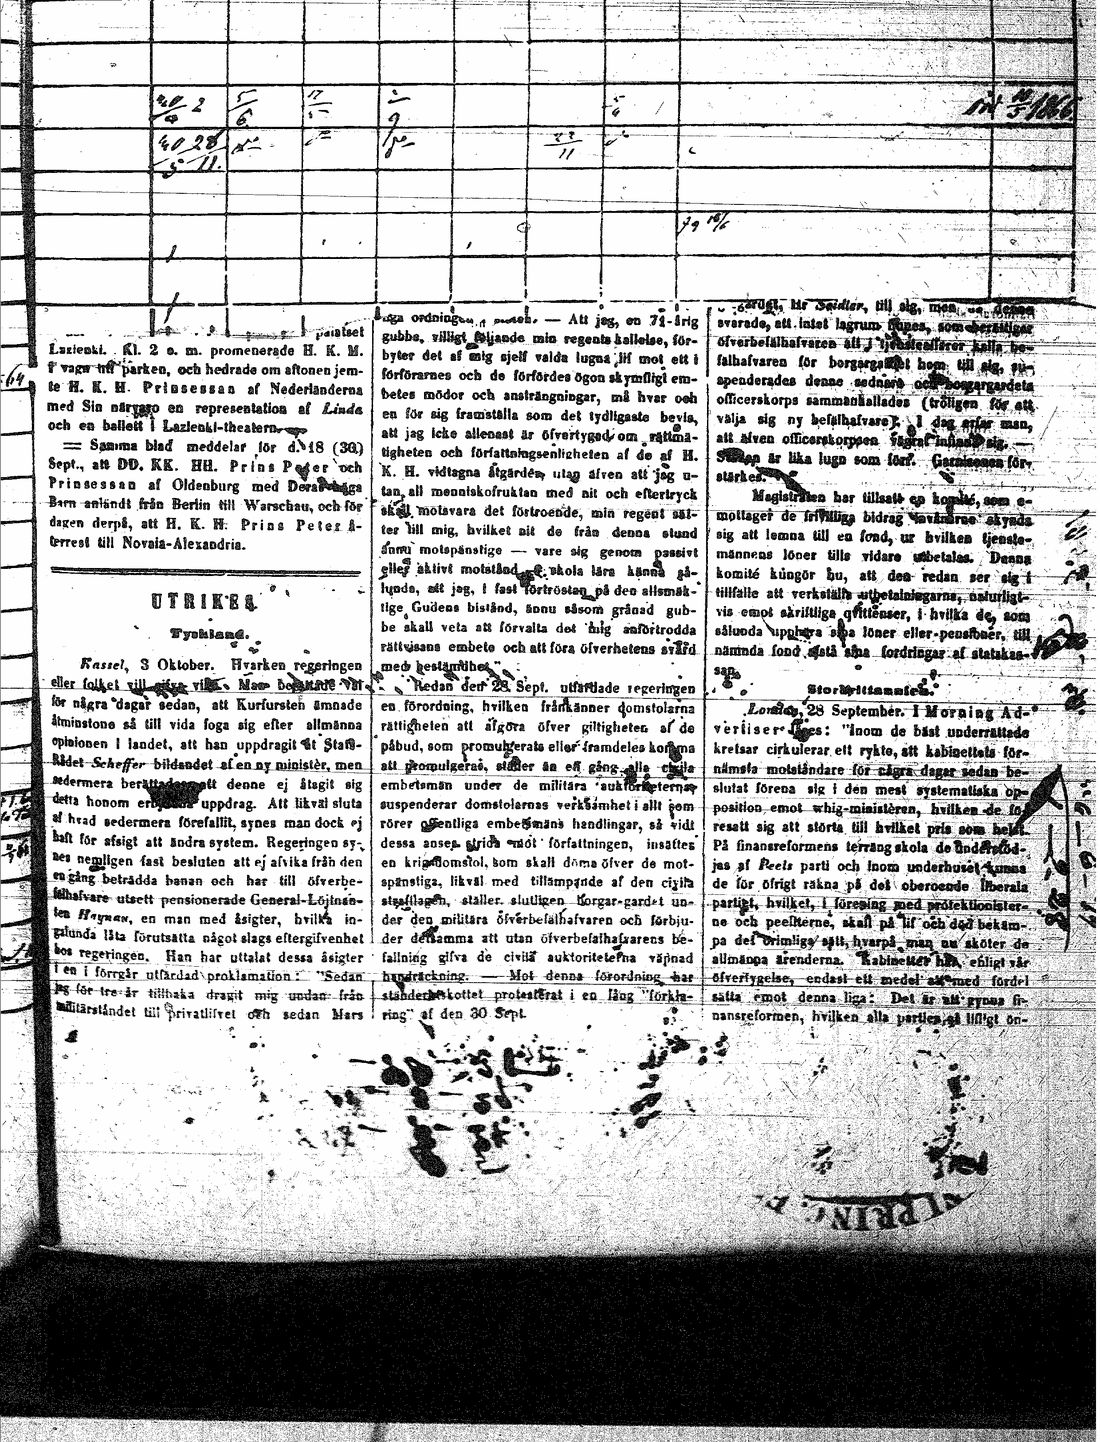 40/9 2 5/6 17/5 2/9 5/4 1866
40/5 28/11 23/11
palatset
Lazienki. Kl. 2 e. m. promenerade H. K. M.
i vagn uti parken, och hedrade om aftonen jem-
te H. K. H. Prinsessan af Nederländerna
med Sin närvaro en representation af Linda
och en ballett i Lazienki-theatern.
= Samma blad meddelar för d. 18 (30)
Sept., att DD. KK. HH. Prins Peter och
Prinsessan af Oldenburg med Deras höga
Barn anländt från Berlin till Warschau, och för
dagen derpå, att H. K. H. Prins Peter å-
terrest till Novaia-Alexandria.
UTRIKES.
Tyskland.
Kassel, 3 Oktober. Hvarken regeringen
eller folket vill gifva vika. Man berättade väl
för några dagar sedan, att Kurfursten ämnade
åtminstone så till vida foga sig efter allmänna
opinionen i landet, att han uppdragit åt Stats-
Rådet Scheffer bildandet af en ny ministèr, men
sedermera berättades att denne ej åtagit sig
detta honom uppdrag. Att likväl sluta
af hvad sedermera förefallit, synes man dock ej
haft för afsigt att ändra system. Regeringen sy-
nes nemligen fast besluten att ej afvika från den
en gång beträdda banan och har till öfverbe-
fälhafvare utsett pensionerade General-Löjtnan-
ten Haynau, en man med åsigter, hvilka in-
galunda låta förutsätta något slags eftergifvenhet
hos regeringen. Han har uttalat dessa åsigter
i en i förrgår utfärdad proklamation: "Sedan
jag för tre år tillbaka dragit mig undan från
militärståndet till privatlifvet och sedan Mars
ordningen — Att jag, en 71-årig
gubbe, villigt följande min regents kallelse, för-
byter det af mig sjelf valda lugna lif mot ett i
förförarnes och de förfördes ögon skymfligt em-
betes mödor och ansträngningar, må hvar och
en för sig framställa som det tydligaste bevis,
att jag icke allenast är öfvertygad om rättmä-
tigheten och författningsenligheten af de af H.
K. H. vidtagna åtgärder, utan äfven att jag u-
tan all menniskofruktan med nit och eftertryck
skall motsvara det förtroende, min regent sät-
ter till mig, hvilket nit de från denna stund
ännu motspänstige — vare sig genom passivt
eller aktivt motstånd — skola lära känna så-
lunda, att jag, i fast förtröstan på den allsmäk-
tige Gudens bistånd, ännu såsom grånad gub-
be skall veta att förvalta det mig anförtrodda
rättvisans embete och att föra öfverhetens svärd
med bestämdhet."
Redan den 28 Sept. utfärdade regeringen
en förordning, hvilken frånkänner domstolarna
rättigheten att afgöra öfver giltigheten af de
påbud, som promulgerats eller framdeles komma
att promulgeras, ställer än en gång alla civila
embetsmän under de militära auktoriteterna,
suspenderar domstolarnas verksamhet i allt som
rörer offentliga embetsmäns handlingar, så vidt
dessa anses strida mot författningen, insätter
en krigsdomstol, som skall döma öfver de mot-
spänstiga, likväl med tillämpande af den civila
strafflagen, ställer slutligen borgar-gardet un-
der den militära öfverbefälhafvaren och förbju-
der detsamma att utan öfverbefälhafvarens be-
fallning gifva de civila auktoriteterna väpnad
handräckning. — Mot denna förordning har
ständerutskottet protesterat i en lång "förkla-
ring" af den 30 Sept.
Hr Seidler, till sig, men denne
svarade, att intet lagrum finnes, som berättigar
öfverbefälhafvaren att i tjensteaffärer kalla be-
fälhafvaren för borgargardet hem till sig, su-
spenderades denne sednare och borgargardets
officerskorps sammankallades (troligen för att
välja sig ny befälhafvare). I dag erfar man,
att äfven officerskorpsen vägrat infinna sig. —
Staden är lika lugn som förr. Garnisonen för-
stärkes.
Magistraten har tillsatt en komité, som e-
mottager de frivilliga bidrag invånarne skynda
sig att lemna till en fond, ur hvilken tjenste-
männens löner tills vidare utbetalas. Denna
komité kungör nu, att den redan ser sig i
tillfälle att verkställa utbetalningarna, naturligt-
vis emot skriftliga qvittenser, i hvilka de, som
sålunda uppbära sina löner eller pensioner, till
nämnda fond afstå sina fordringar af statskas-
san.
Storbrittannien.
London, 28 September. I Morning Ad-
vertiser läses: "Inom de bäst underrättade
kretsar cirkulerar ett rykte, att kabinettets för-
nämsta motståndare för några dagar sedan be-
slutat förena sig i den mest systematiska op-
position emot whig-ministèren, hvilken de fö-
resatt sig att störta till hvilket pris som helst.
På finansreformens terräng skola de understöd-
jas af Peels parti och inom underhuset kunna
de för öfrigt räkna på det oberoende liberala
partiet, hvilket, i förening med protektionister-
ne och peeliterne, skall på lif och död bekäm-
pa det orimliga sätt, hvarpå man nu sköter de
allmänna ärenderna. Kabinettet har, enligt vår
öfvertygelse, endast ett medel att med fördel
sätta emot denna liga: Det är att gynna fi-
nansreformen, hvilken alla partier så lifligt ön-